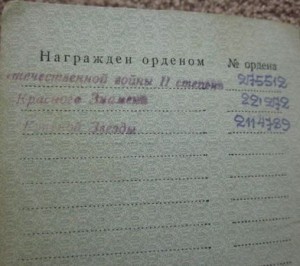 Награжден орденом № ордена
Отечественной войны II степени 275512
Красного Знамени 221272
Красной Звезды 2114789